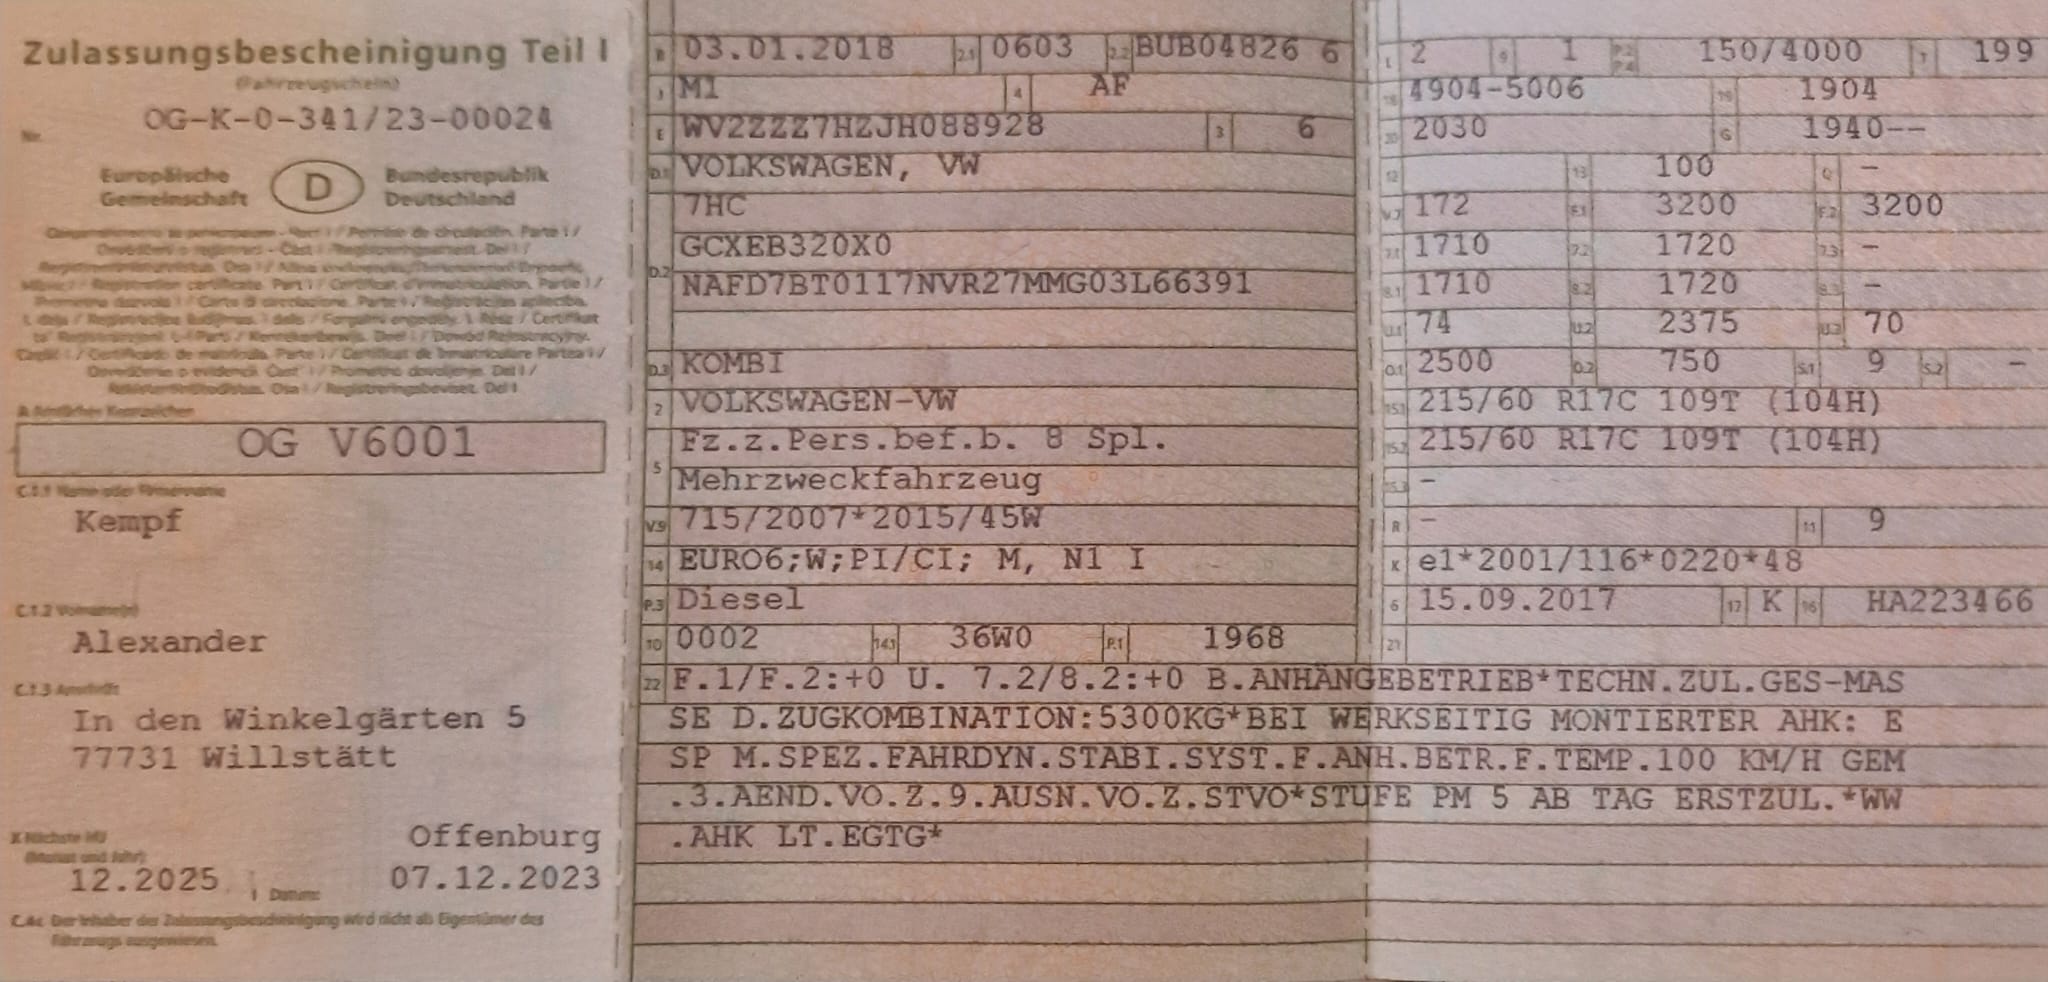 Zulassungsbescheinigung Teil I
(Fahrzeugschein)
Nr. OG-K-0-341/23-00024
Europäische Gemeinschaft D Bundesrepublik Deutschland
A Amtliches Kennzeichen
OG V6001
C.1.1 Name oder Firmenname
Kempf
C.1.2 Vorname(n)
Alexander
C.1.3 Anschrift
In den Winkelgärten 5
77731 Willstätt
X Nächste HU (Monat und Jahr)
Offenburg
12.2025 I Datum: 07.12.2023
C.4c Der Inhaber der Zulassungsbescheinigung wird nicht als Eigentümer des
Fahrzeugs ausgewiesen.
B 03.01.2018 2.1 0603 2.2 BUB04826 6
J M1 4 AF
E WV2ZZZ7HZJH088928 3 6
D.1 VOLKSWAGEN, VW
7HC
D.2 GCXEB320X0
NAFD7BT0117NVR27MMG03L66391
D.3 KOMBI
2 VOLKSWAGEN-VW
5 Fz.z.Pers.bef.b. 8 Spl.
Mehrzweckfahrzeug
V.9 715/2007*2015/45W
14 EURO6;W;PI/CI; M, N1 I
P.3 Diesel
10 0002 14.1 36W0 P.1 1968
L 2 9 1 P.2 P.4 150/4000 T 199
18 4904-5006 19 1904
20 2030 G 1940--
12 13 100 Q -
V.7 172 F.1 3200 F.2 3200
7.1 1710 7.2 1720 7.3 -
8.1 1710 8.2 1720 8.3 -
U.1 74 U.2 2375 U.3 70
O.1 2500 O.2 750 S.1 9 S.2 -
15.1 215/60 R17C 109T (104H)
15.2 215/60 R17C 109T (104H)
15.3 -
R - 11 9
K e1*2001/116*0220*48
6 15.09.2017 17 K 16 HA223466
21
22 F.1/F.2:+0 U. 7.2/8.2:+0 B.ANHÄNGEBETRIEB*TECHN.ZUL.GES-MAS
SE D.ZUGKOMBINATION:5300KG*BEI WERKSEITIG MONTIERTER AHK: E
SP M.SPEZ.FAHRDYN.STABI.SYST.F.ANH.BETR.F.TEMP.100 KM/H GEM
.3.AEND.VO.Z.9.AUSN.VO.Z.STVO*STUFE PM 5 AB TAG ERSTZUL.*WW
.AHK LT.EGTG*